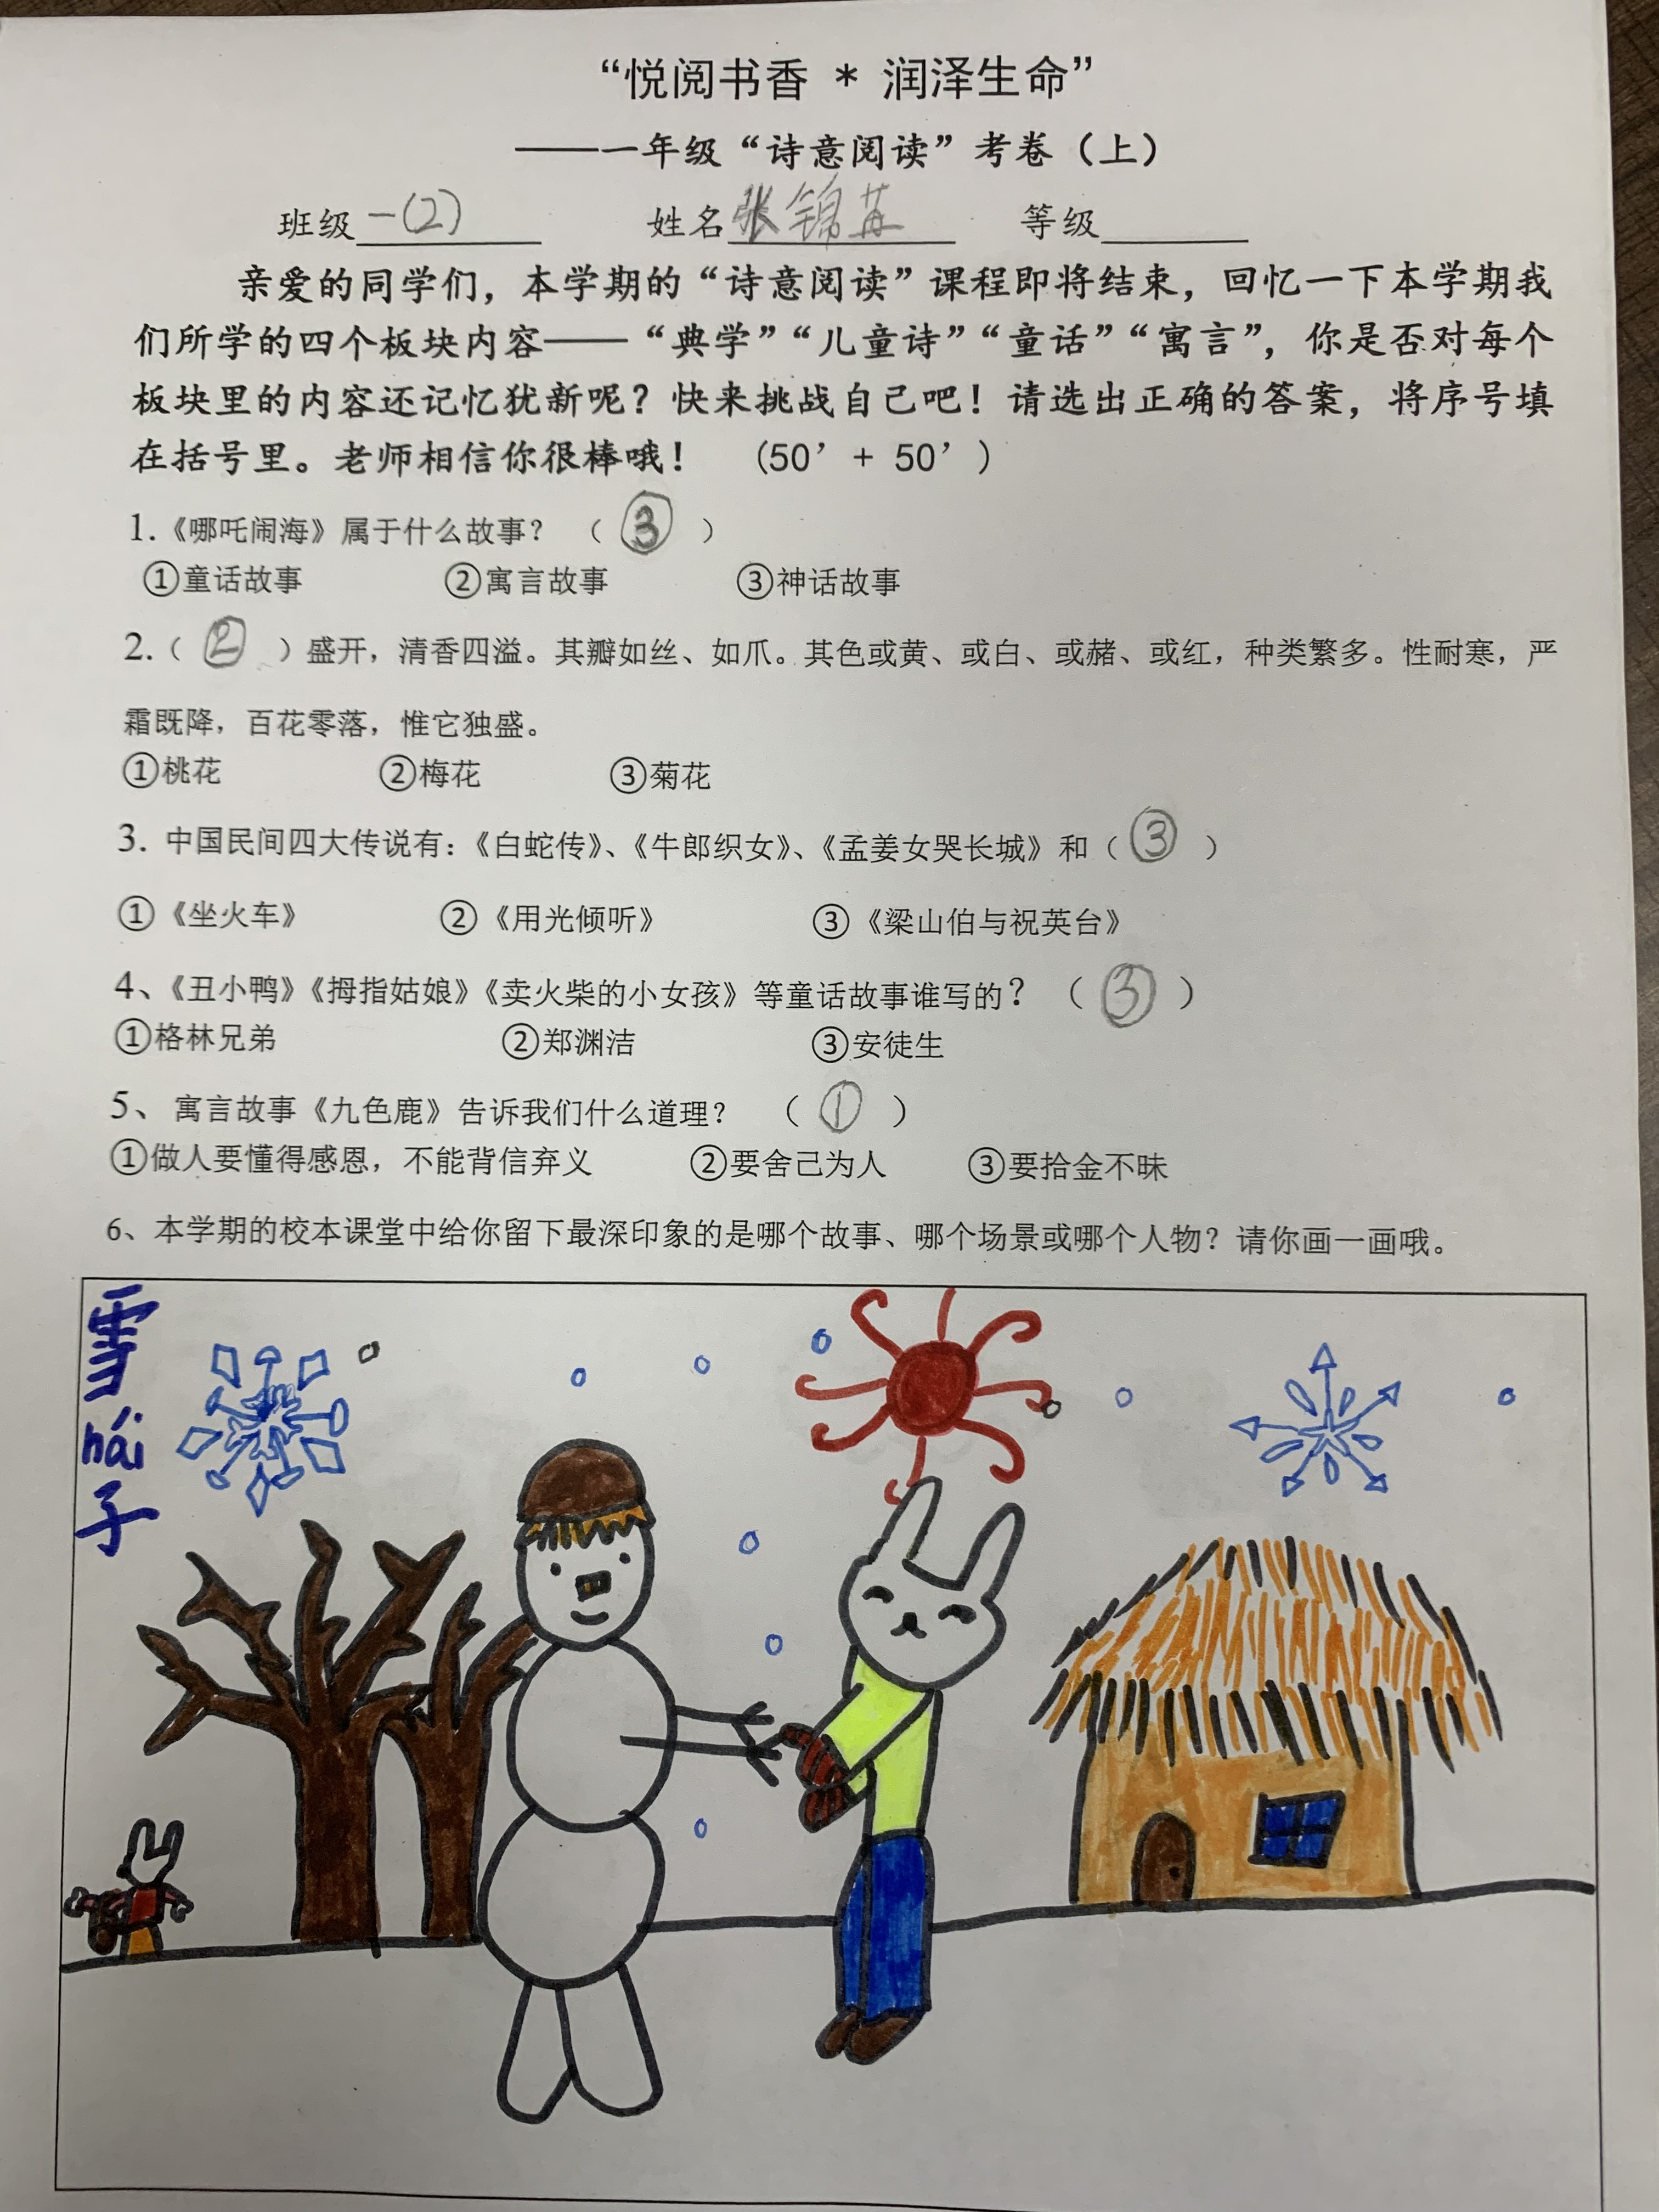 “悦阅书香 * 润泽生命”
——一年级“诗意阅读”考卷（上）
班级一(2) 姓名张锦苒 等级
亲爱的同学们，本学期的“诗意阅读”课程即将结束，回忆一下本学期我
们所学的四个板块内容——“典学”“儿童诗”“童话”“寓言”，你是否对每个
板块里的内容还记忆犹新呢？快来挑战自己吧！请选出正确的答案，将序号填
在括号里。老师相信你很棒哦！ （50’ + 50’ ）
1.《哪吒闹海》属于什么故事？ （ ③ ）
①童话故事 ②寓言故事 ③神话故事
2.（ ② ）盛开，清香四溢。其瓣如丝、如爪。其色或黄、或白、或赭、或红，种类繁多。性耐寒，严
霜既降，百花零落，惟它独盛。
①桃花 ②梅花 ③菊花
3. 中国民间四大传说有：《白蛇传》、《牛郎织女》、《孟姜女哭长城》和（ ③ ）
①《坐火车》 ②《用光倾听》 ③《梁山伯与祝英台》
4、《丑小鸭》《拇指姑娘》《卖火柴的小女孩》等童话故事谁写的？ （ ③ ）
①格林兄弟 ②郑渊洁 ③安徒生
5、 寓言故事《九色鹿》告诉我们什么道理？ （ ① ）
①做人要懂得感恩，不能背信弃义 ②要舍己为人 ③要拾金不昧
6、本学期的校本课堂中给你留下最深印象的是哪个故事、哪个场景或哪个人物？请你画一画哦。
雪
hái
子